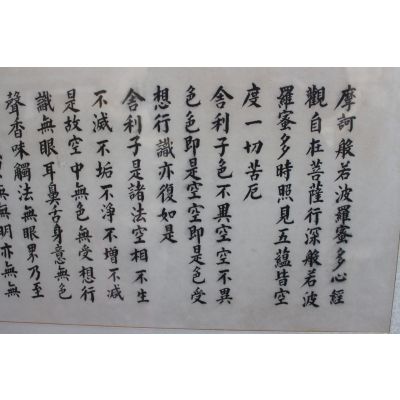 摩訶般若波羅蜜多心經
觀自在菩薩行深般若波
羅蜜多時照見五蘊皆空
度一切苦厄
舎利子色不異空空不異
色色即是空空即是色受
想行識亦復如是
舎利子是諸法空相不生
不滅不垢不淨不增不減
是故空中無色無受想行
識無眼耳鼻舌身意無色
聲香味觸法無眼界乃至
無無明亦無無